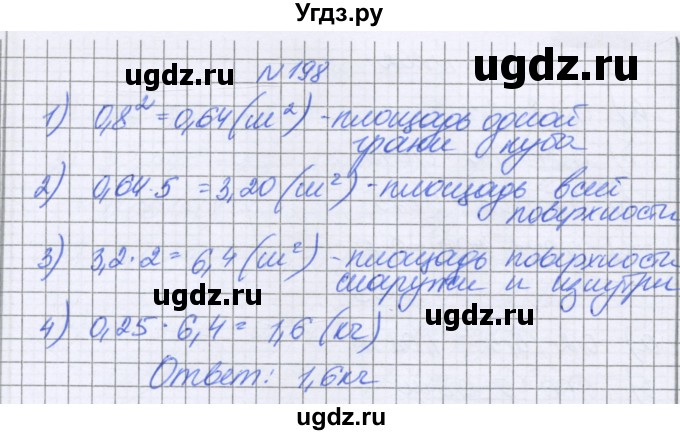 Угдз.ру
ugdz.ru ugdz.ru
N 198
1) 0,8² = 0,64 (м²) - площадь одной
грани куба
2) 0,64·5 = 3,20 (м²) - площадь всей
поверхности
ugdz.ru ugdz.ru
3) 3,2·2 = 6,4 (м²) - площадь поверхности
снаружи и изнутри
ugdz.ru ugdz.ru
4) 0,25·6,4 = 1,6 (кг)
Ответ: 1,6 кг
ugdz.ru